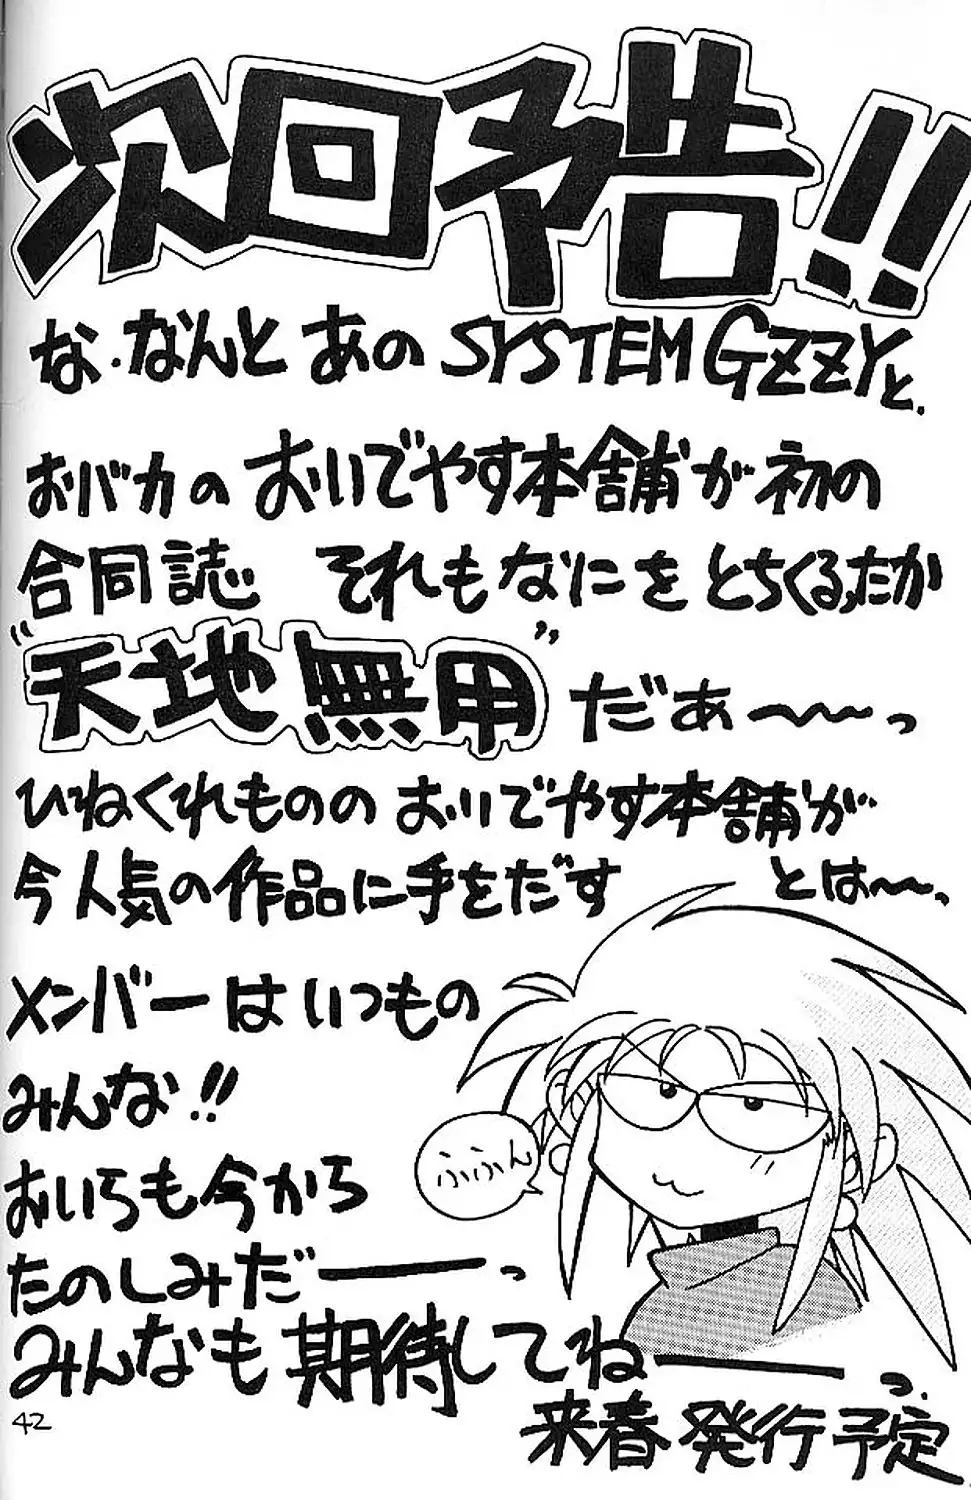 次回予告!!
な・なんと あの SYSTEM GZZYと、
おバカの おいでやす本舗が 初の
合同誌 それもなにを とちくるったか
"天地無用" だぁ〜〜っ
ひねくれものの おいでやす本舗が
今人気の作品に手をだす とは〜〜、
メンバーは いつもの
みんな!!
ふふん
おいらも今から
たのしみだーーっ
みんなも期待してねーーっ、
来春 発行予定
42